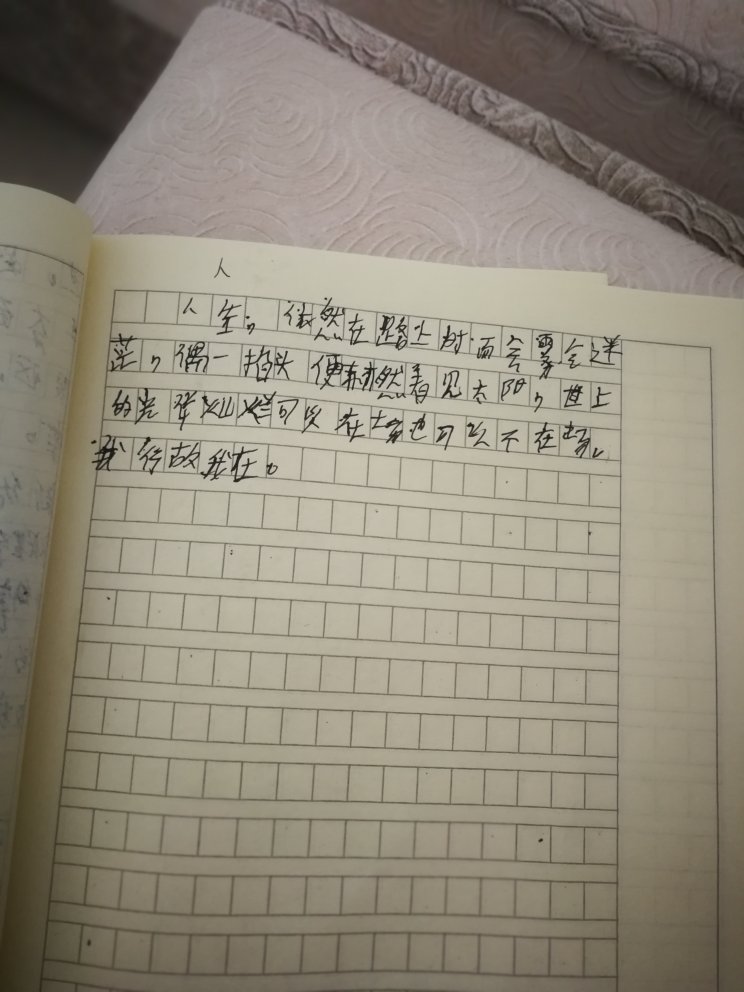 人
人生,微然在路上时而会雾会迷
茫,偶一抬头便赫然看见太阳,世上
的光华灿烂可以在场也可以不在场。
我行故我在。